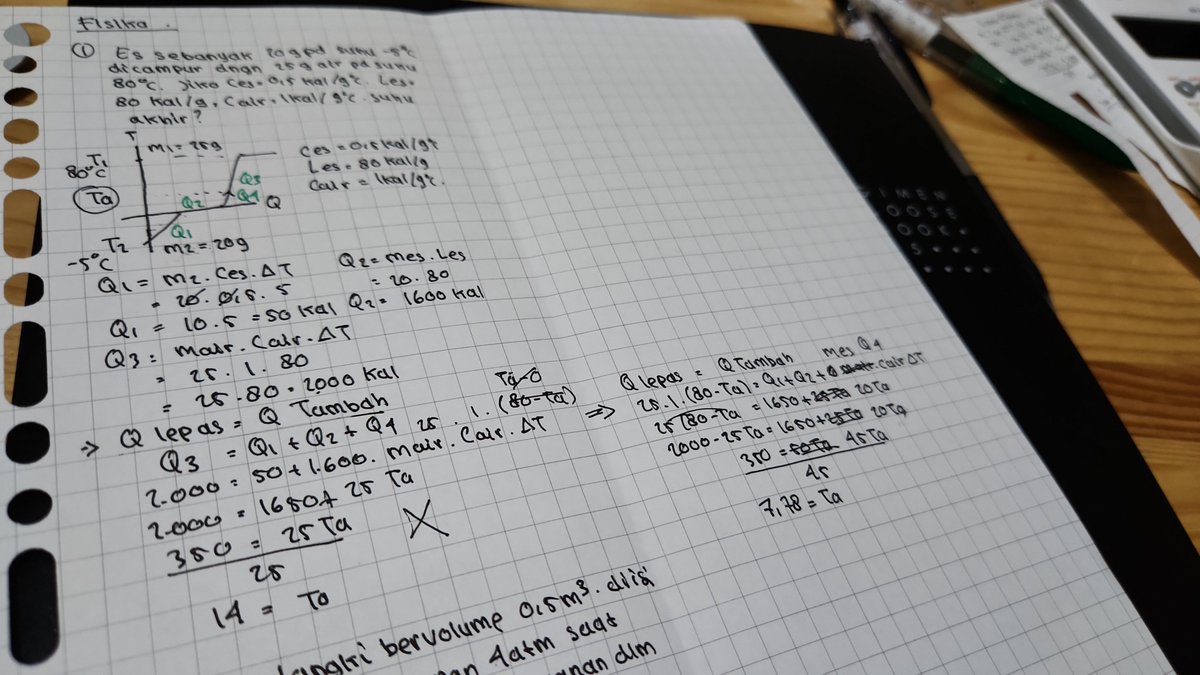 Fisika.
① Es sebanyak 20g pd suhu -5°C
dicampur dngn 25g air pd suhu
80°C. Jika Ces=0,5 kal/g°C. Les=
80 kal/g, Cair=1kal/g°C. suhu
akhir?
T
m1=25g
T1
80°C
Ta
Q2
Q3
Q4
Q
Q1
T2
-5°C
m2=20g
Ces=0,5 kal/g°C
Les=80 kal/g
Cair=1kal/g°C.
Q1 = m2.Ces.ΔT
= 20.0,5.5
Q1 = 10.5=50 kal
Q2=mes.Les
= 20.80
Q2= 1600 kal
Q3= mair.Cair.ΔT
= 25.1.80
= 25.80=2000 kal
→ Q lepas = Q Tambah
Ta-0
25.1.(80-Ta)
Q3 = Q1+Q2+Q4
2.000=50+1.600.mair.Cair.ΔT
2.000=1650+25 Ta
350 = 25 Ta
25
14 = Ta
X
⇒ Q lepas = Q Tambah
mes Q4
25.1.(80-Ta)=Q1+Q2+ Cair ΔT
25(80-Ta=1650+ 20Ta
2000-25Ta=1650+ 20Ta
350= 45Ta
45
7,78=Ta
bervolume 0,5m³. diisi
4atm saat
dlm